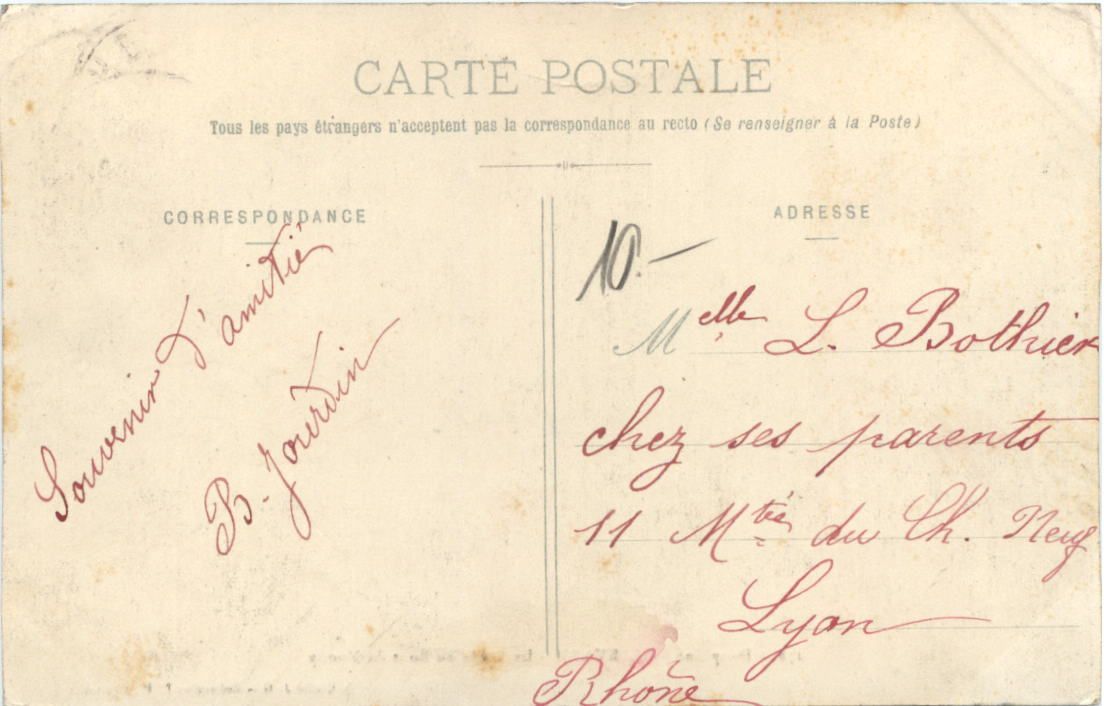 CARTE POSTALE
Tous les pays étrangers n'acceptent pas la correspondance au recto (Se renseigner à la Poste)
CORRESPONDANCE
Souvenir d'amitié
B. Jourdin
ADRESSE
10.-
Melle L. Bothier
chez ses parents
11 Mtée du Ch. Neuf
Lyon
Rhône